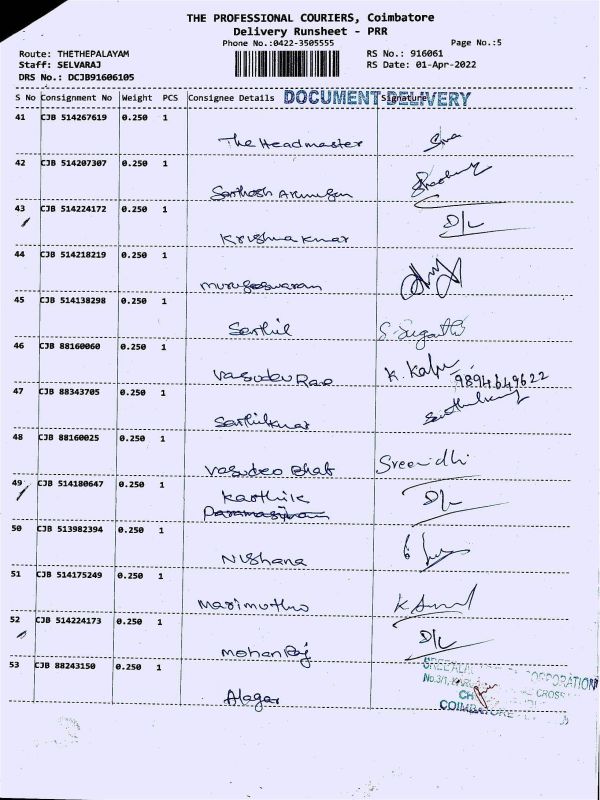 THE PROFESSIONAL COURIERS, Coimbatore
Delivery Runsheet - PRR
Phone No.:0422-3505555 Page No.:5
Route: THETHEPALAYAM RS No.: 916061
Staff: SELVARAJ RS Date: 01-Apr-2022
DRS No.: DCJB91606105
S No Consignment No Weight PCS Consignee Details DOCUMENT DELIVERY Signature
41 CJB 514267619 0.250 1
The Headmaster
42 CJB 514207307 0.250 1
Santhosh Arumugam
43 CJB 514224172 0.250 1
Krishna Kumar D/L
44 CJB 514218219 0.250 1
Murugeswaran
45 CJB 514138298 0.250 1
Senthil S. Sugathi
46 CJB 88160060 0.250 1
Vasudev Rao K.
9894649622
47 CJB 88343705 0.250 1
Senthilkumar
48 CJB 88160025 0.250 1
Vasudeo Bhat Sreenidhi
49 CJB 514180647 0.250 1
Karthik D/L
Paramasivam
50 CJB 513982394 0.250 1
Nishana
51 CJB 514175249 0.250 1
Marimuthu
52 CJB 514224173 0.250 1
Mohan Raj D/L
53 CJB 88243150 0.250 1
Alagar
No.3/1, CROSS
COIMBATORE